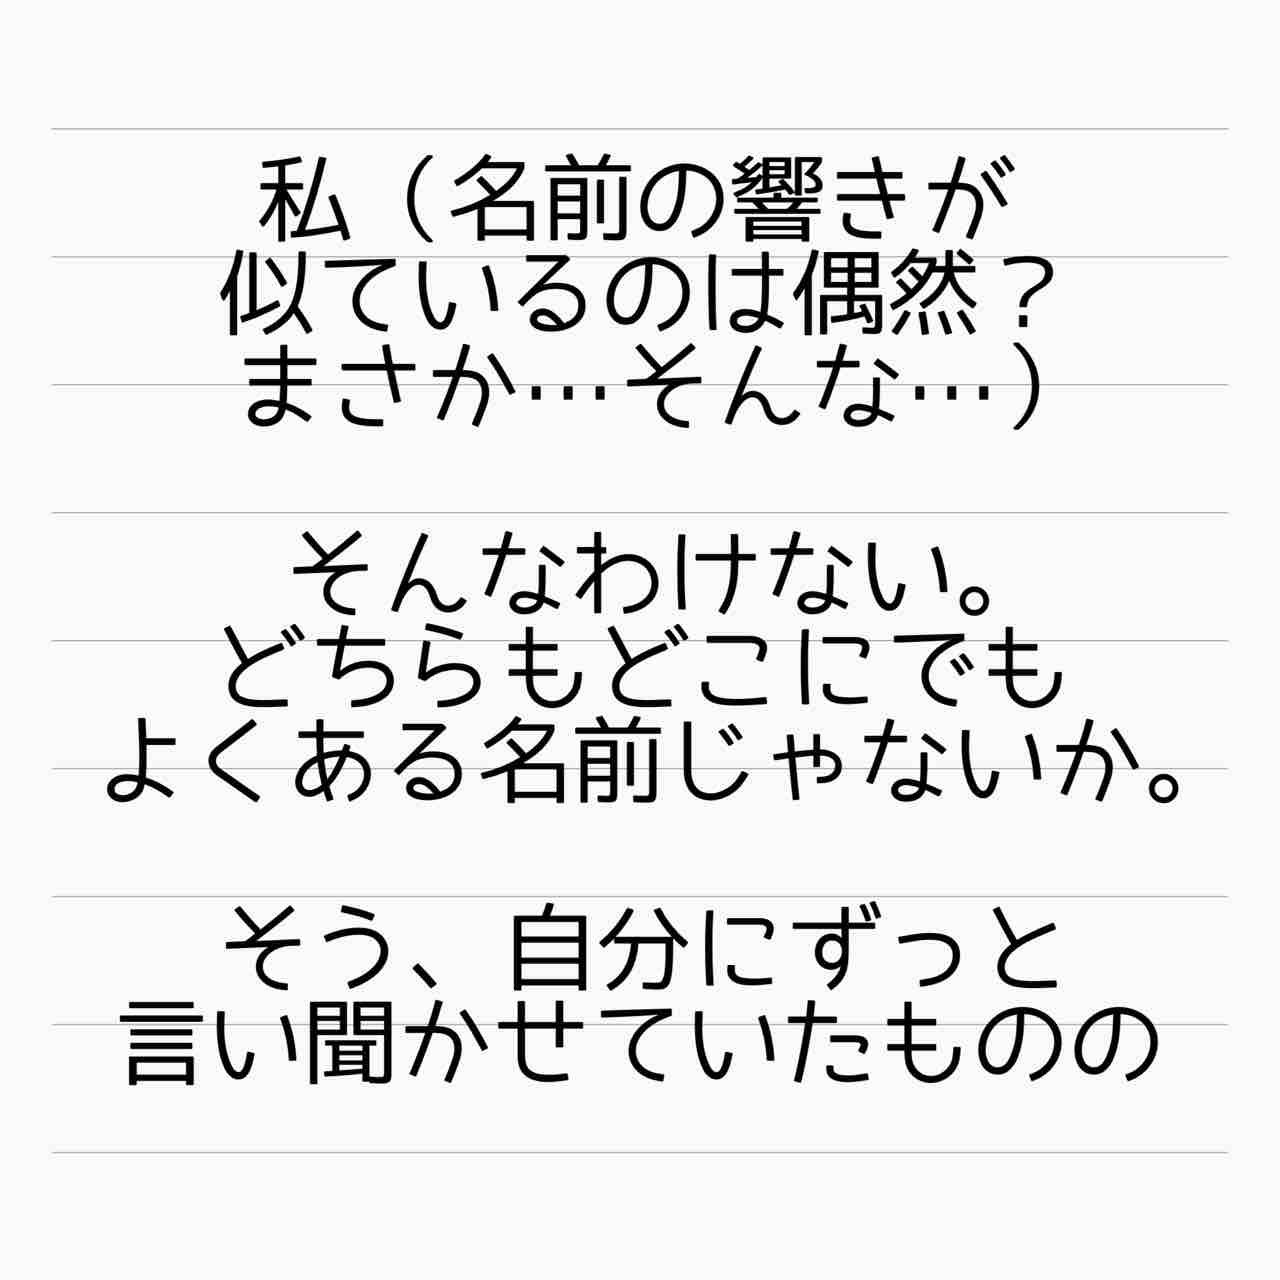 私（名前の響きが
似ているのは偶然？
まさか…そんな…）
そんなわけない。
どちらもどこにでも
よくある名前じゃないか。
そう、自分にずっと
言い聞かせていたものの